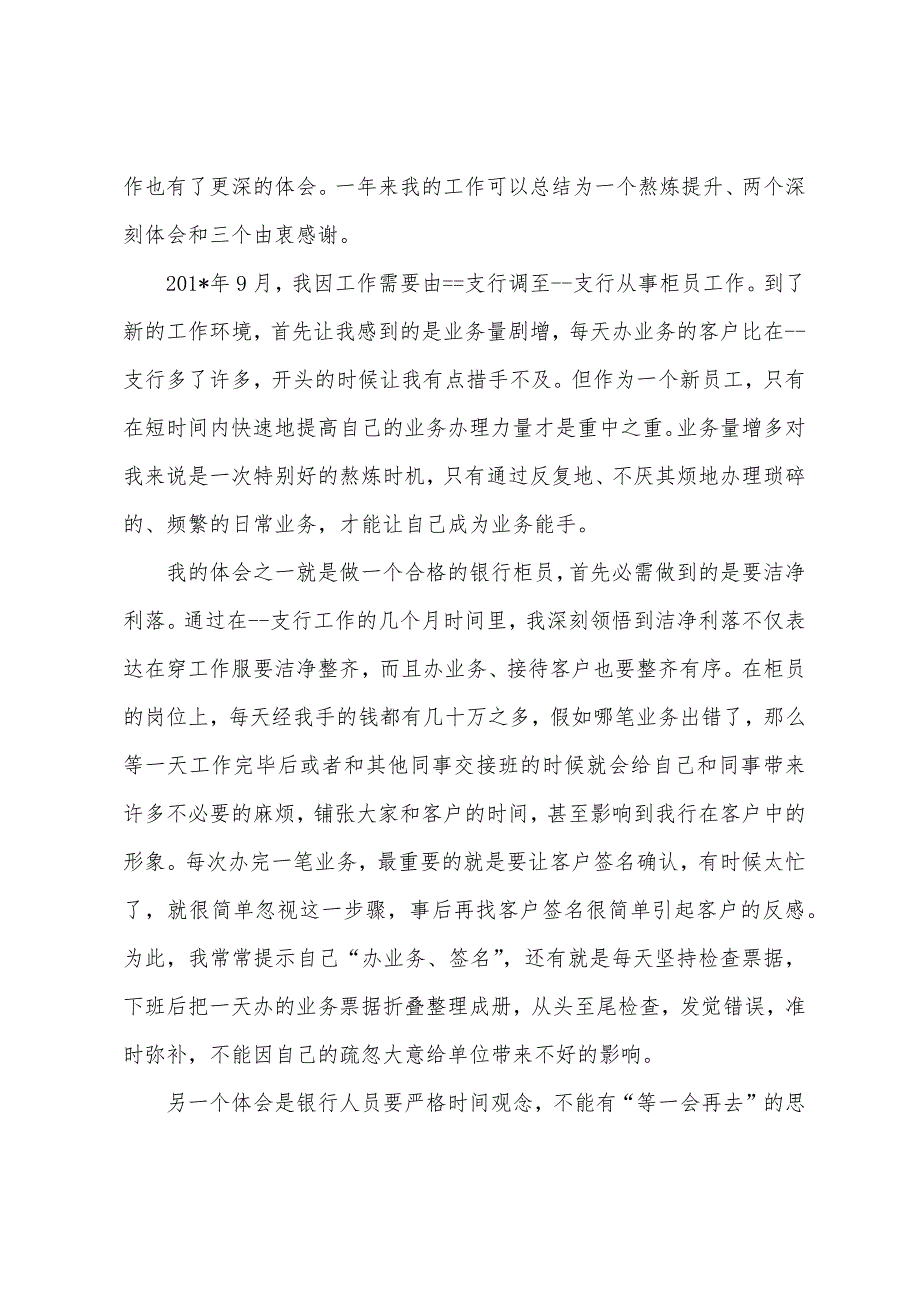 作也有了更深的体会。一年来我的工作可以总结为一个熬炼提升、两个深
刻体会和三个由衷感谢。
201*年9月，我因工作需要由==支行调至--支行从事柜员工作。到了
新的工作环境，首先让我感到的是业务量剧增，每天办业务的客户比在--
支行多了许多，开头的时候让我有点措手不及。但作为一个新员工，只有
在短时间内快速地提高自己的业务办理力量才是重中之重。业务量增多对
我来说是一次特别好的熬炼时机，只有通过反复地、不厌其烦地办理琐碎
的、频繁的日常业务，才能让自己成为业务能手。
我的体会之一就是做一个合格的银行柜员，首先必需做到的是要洁净
利落。通过在--支行工作的几个月时间里，我深刻领悟到洁净利落不仅表
达在穿工作服要洁净整齐，而且办业务、接待客户也要整齐有序。在柜员
的岗位上，每天经我手的钱都有几十万之多，假如哪笔业务出错了，那么
等一天工作完毕后或者和其他同事交接班的时候就会给自己和同事带来
许多不必要的麻烦，铺张大家和客户的时间，甚至影响到我行在客户中的
形象。每次办完一笔业务，最重要的就是要让客户签名确认，有时候太忙
了，就很简单忽视这一步骤，事后再找客户签名很简单引起客户的反感。
为此，我常常提示自己“办业务、签名”，还有就是每天坚持检查票据，
下班后把一天办的业务票据折叠整理成册，从头至尾检查，发觉错误，准
时弥补，不能因自己的疏忽大意给单位带来不好的影响。
另一个体会是银行人员要严格时间观念，不能有“等一会再去”的思